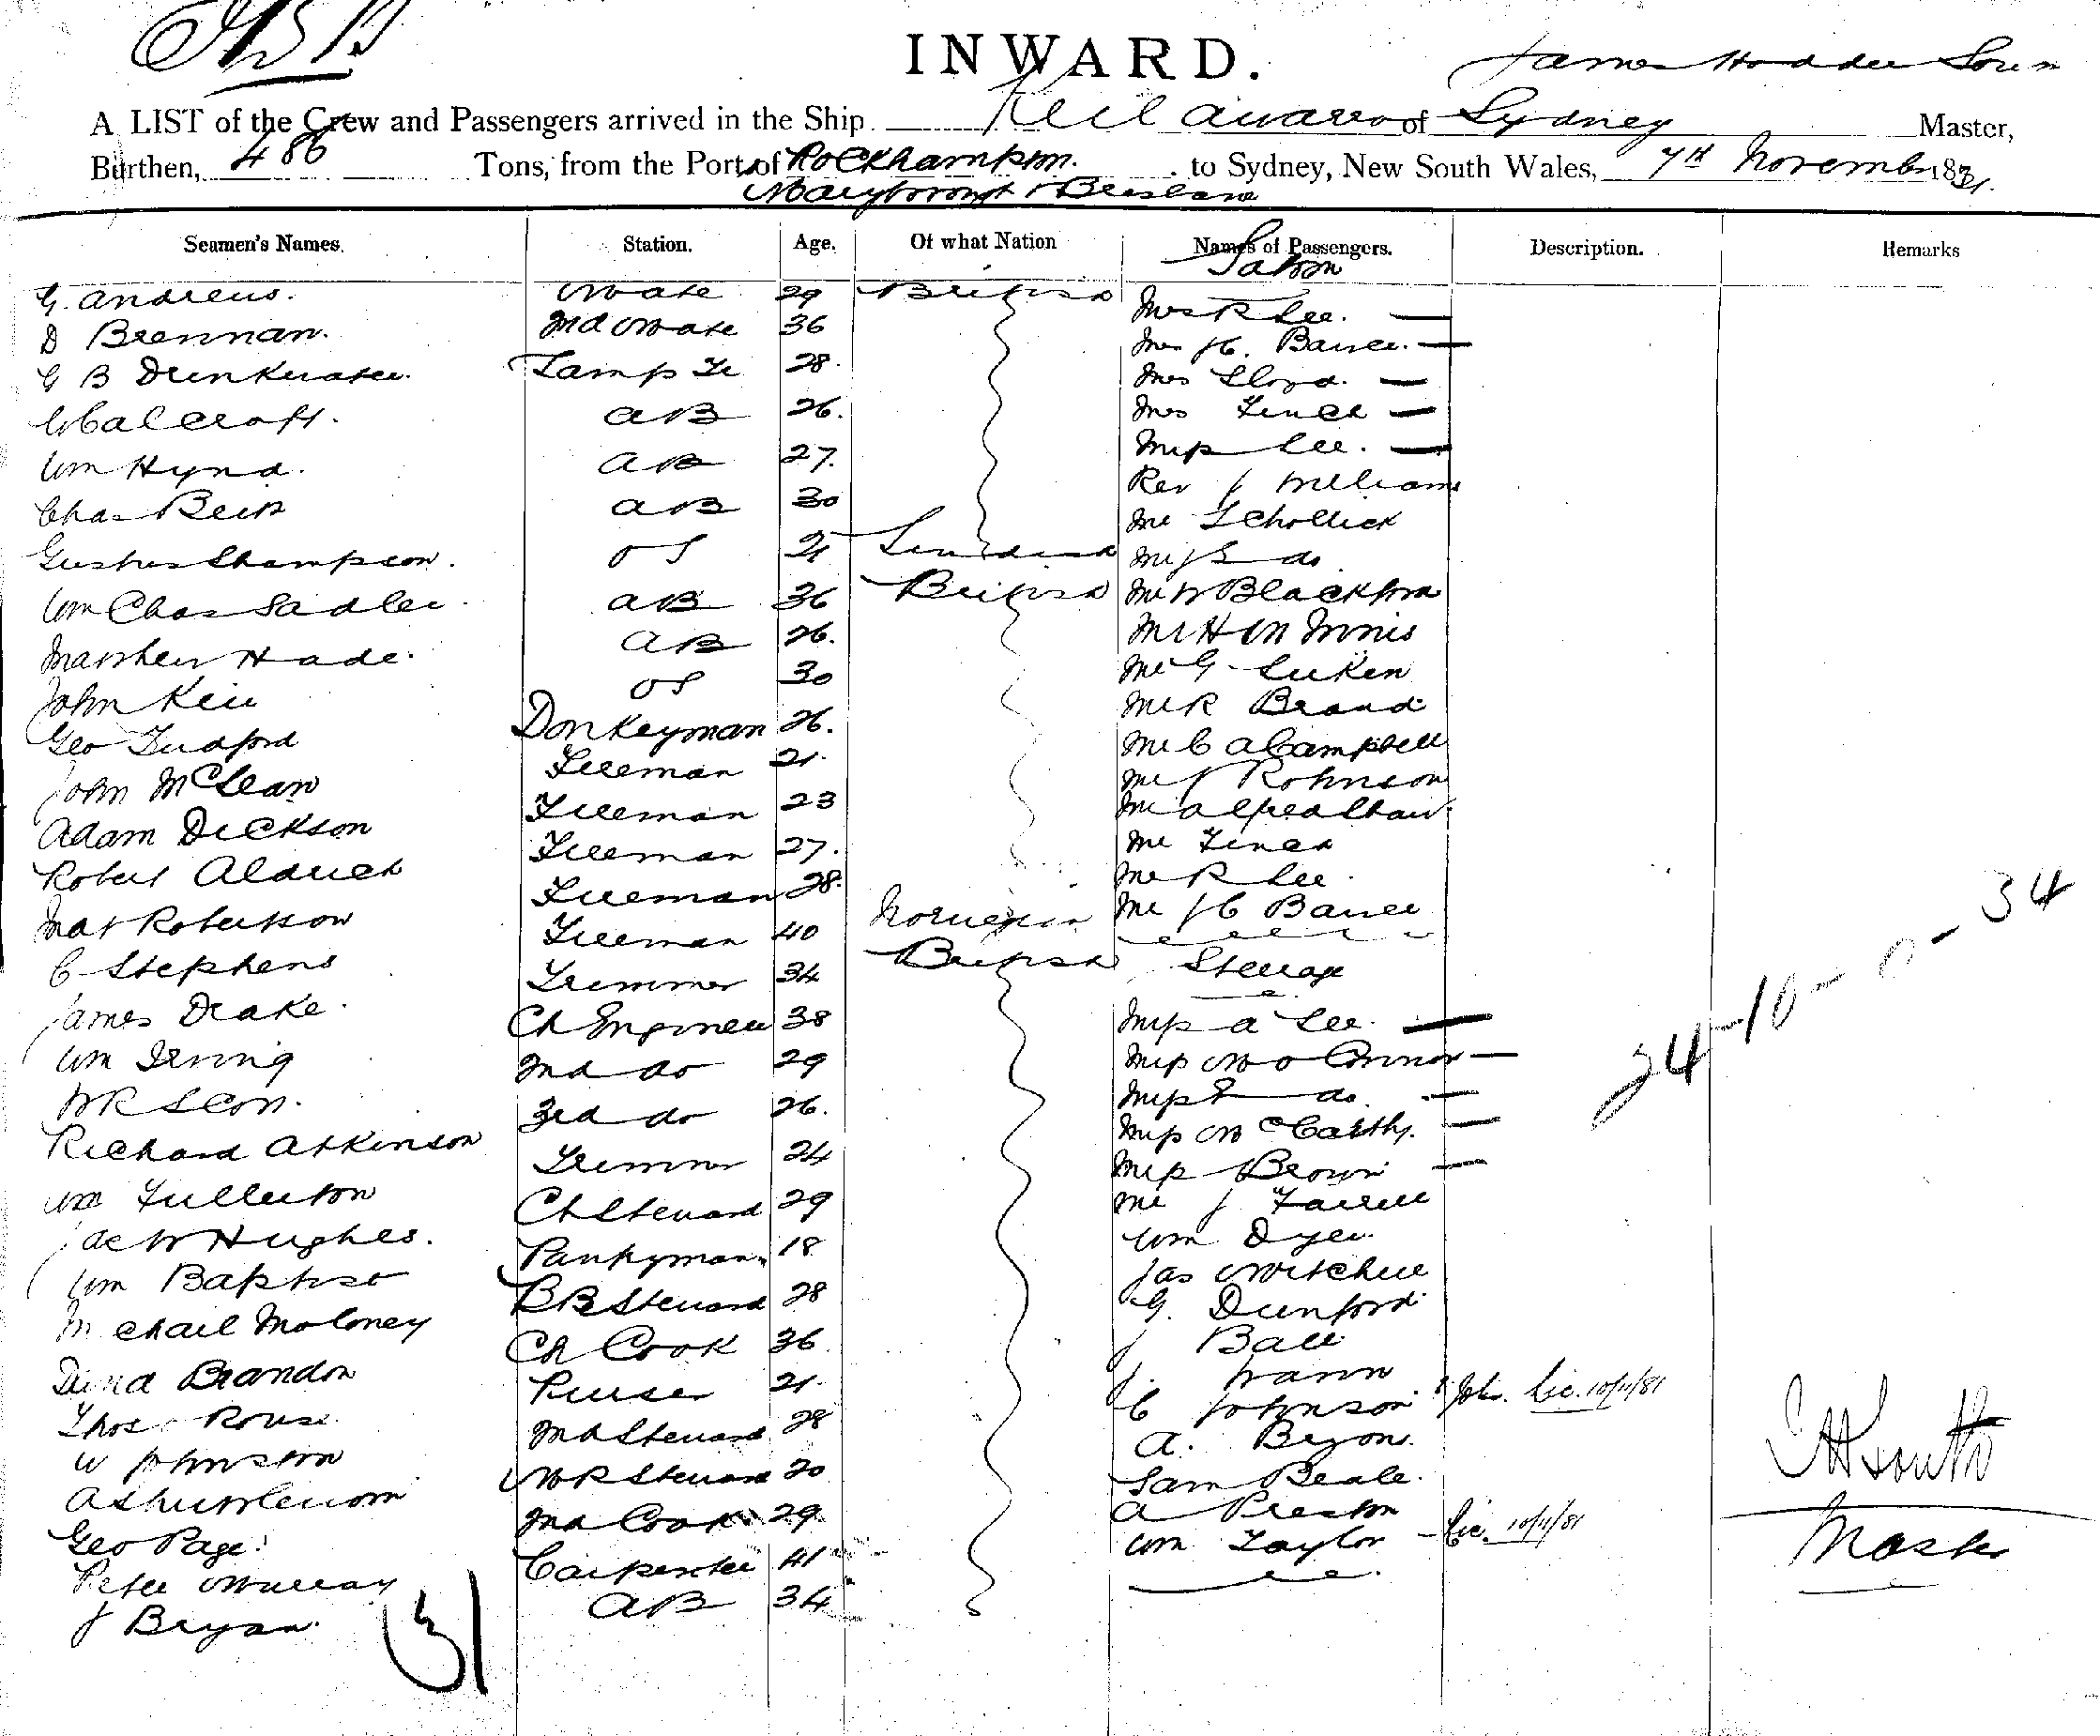 INWARD.
James Hodder South
A LIST of the Crew and Passengers arrived in the Ship Keilawarra of Sydney Master,
Burthen, 486 Tons, from the Port of Rockhampton. to Sydney, New South Wales, 7th November 1881.
Maryborough & Brisbane
Seamen's Names. Station. Age. Of what Nation Names of Passengers. Description. Remarks
Saloon
G. Andrews. Mate 29 British Mrs R Lee. —
D Brennan. 2nd Mate 36 Mrs J C. Barree. —
G B Drinkwater. Lamp Tr 28. Mrs Lloyd. —
Calcroft. AB 26. Mrs Finch —
Wm Hynd. AB 27. Miss Lee. —
Chas AB 30 Rev J Williams
Mr T Chollick
Gustus Champson. OS 21 Mr do
Wm Chas Sadler. AB 36 British Mr W Blackford
Matthew Hade. AB 26. Mr H M Innis
John Keir OS 30 Mr G Luken
Geo Tudford Donkeyman 26. Mr R Brand
John McLean Fireman 21. Mr C A Campbell
Mr J Rohnson
Adam Dickson Fireman 23 Mr Alfred Shaw.
Robert Aldrich Fireman 27. Mr Finch
Mr R Lee.
Mat Robertson Fireman 28. Mr J C Barree
C Stephens Fireman 40 Norwegian
James Drake. Trimmer 34 British Steerage
Wm Irving Ch Engineer 38 Miss A Lee. —
W R Scott. 2nd do 29 Miss M O Connor —
Richard Atkinson 3rd do 26. Miss E do. —
Miss McCarthy. —
Wm Fullerton Trimmer 24 Miss Brown —
Jac W Hughes. Ch Steward 29 Mr J Farrell
Wm Baptist Pantryman 18 Wm Dyer.
Michail Moloney BB Steward 28 Jas Mitchell
G. Dunford.
David Brandon Ch Cook 36 J Ball
Thos Rouse. Purser 21. J. Wann
W Johnston 2nd Steward 28 C Johnson Lic. 10/11/81
A. Bryon.
MR Steward 20 Sam Beale.
Geo Page. 2nd Cook 29. A Preston
Peter Murray Carpenter 41 Wm Taylor — Lic. 10/11/81
J Bryan. AB 34
31
34-10-0-34
J H South
Master